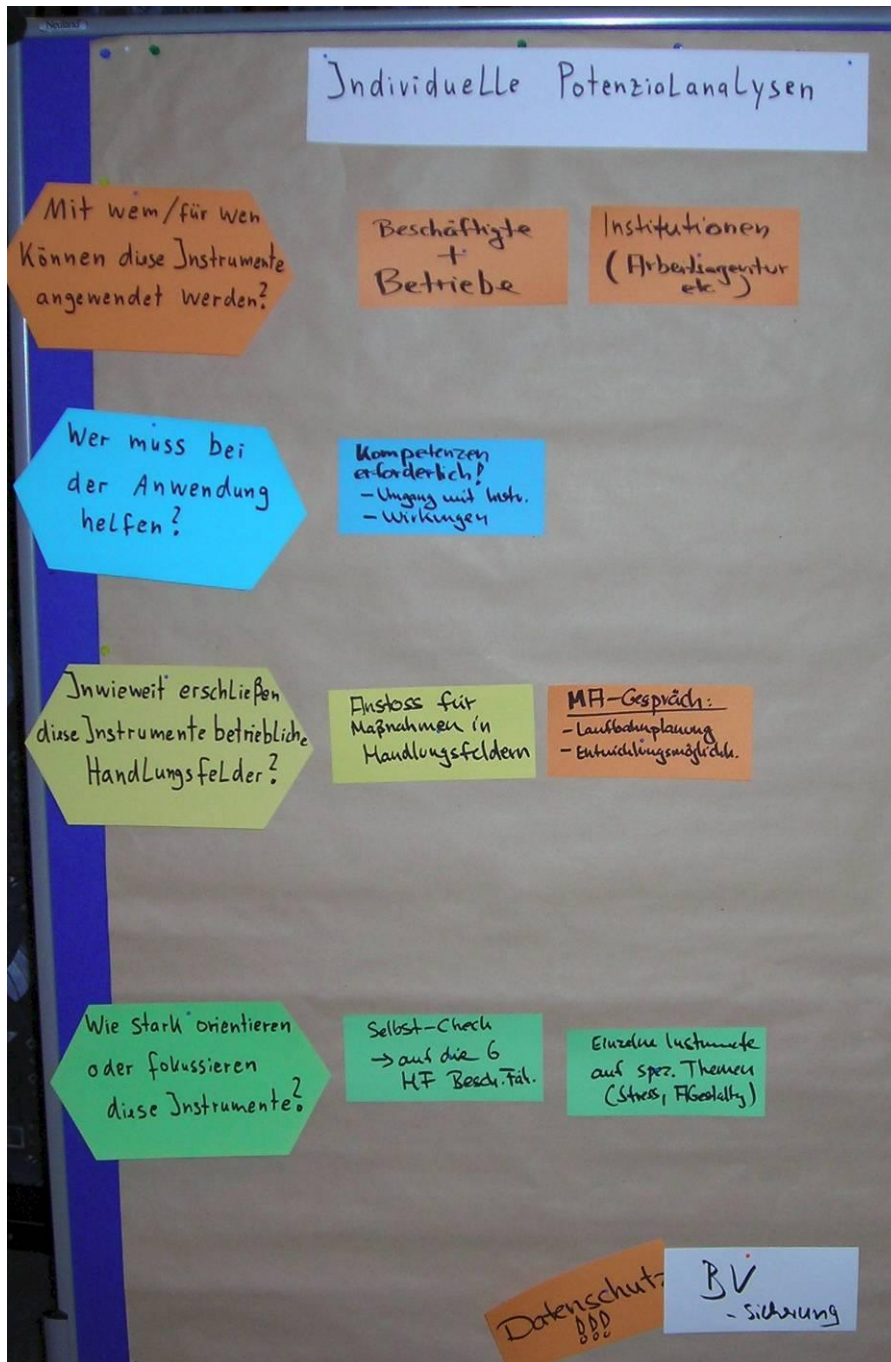 Neuland
Individuelle Potenzialanalysen
Mit wem/für wen
können diese Instrumente
angewendet werden?
Beschäftigte
+
Betriebe
Institutionen
(Arbeitsagentur
etc.)
Wer muss bei
der Anwendung
helfen?
Kompetenzen
erforderlich!
- Umgang mit Instr.
- Wirkungen
Inwieweit erschließen
diese Instrumente betriebliche
Handlungsfelder?
Anstoss für
Maßnahmen in
Handlungsfeldern
MA-Gespräch:
- Laufbahnplanung
- Entwicklungsmöglichk.
Wie stark orientieren
oder fokussieren
diese Instrumente?
Selbst-Check
→ auf die 6
HF Besch.Fäh.
Einzelne Instrumente
auf spez. Themen
(Stress, AGestaltg)
Datenschutz
!!!
BV
- Sicherung